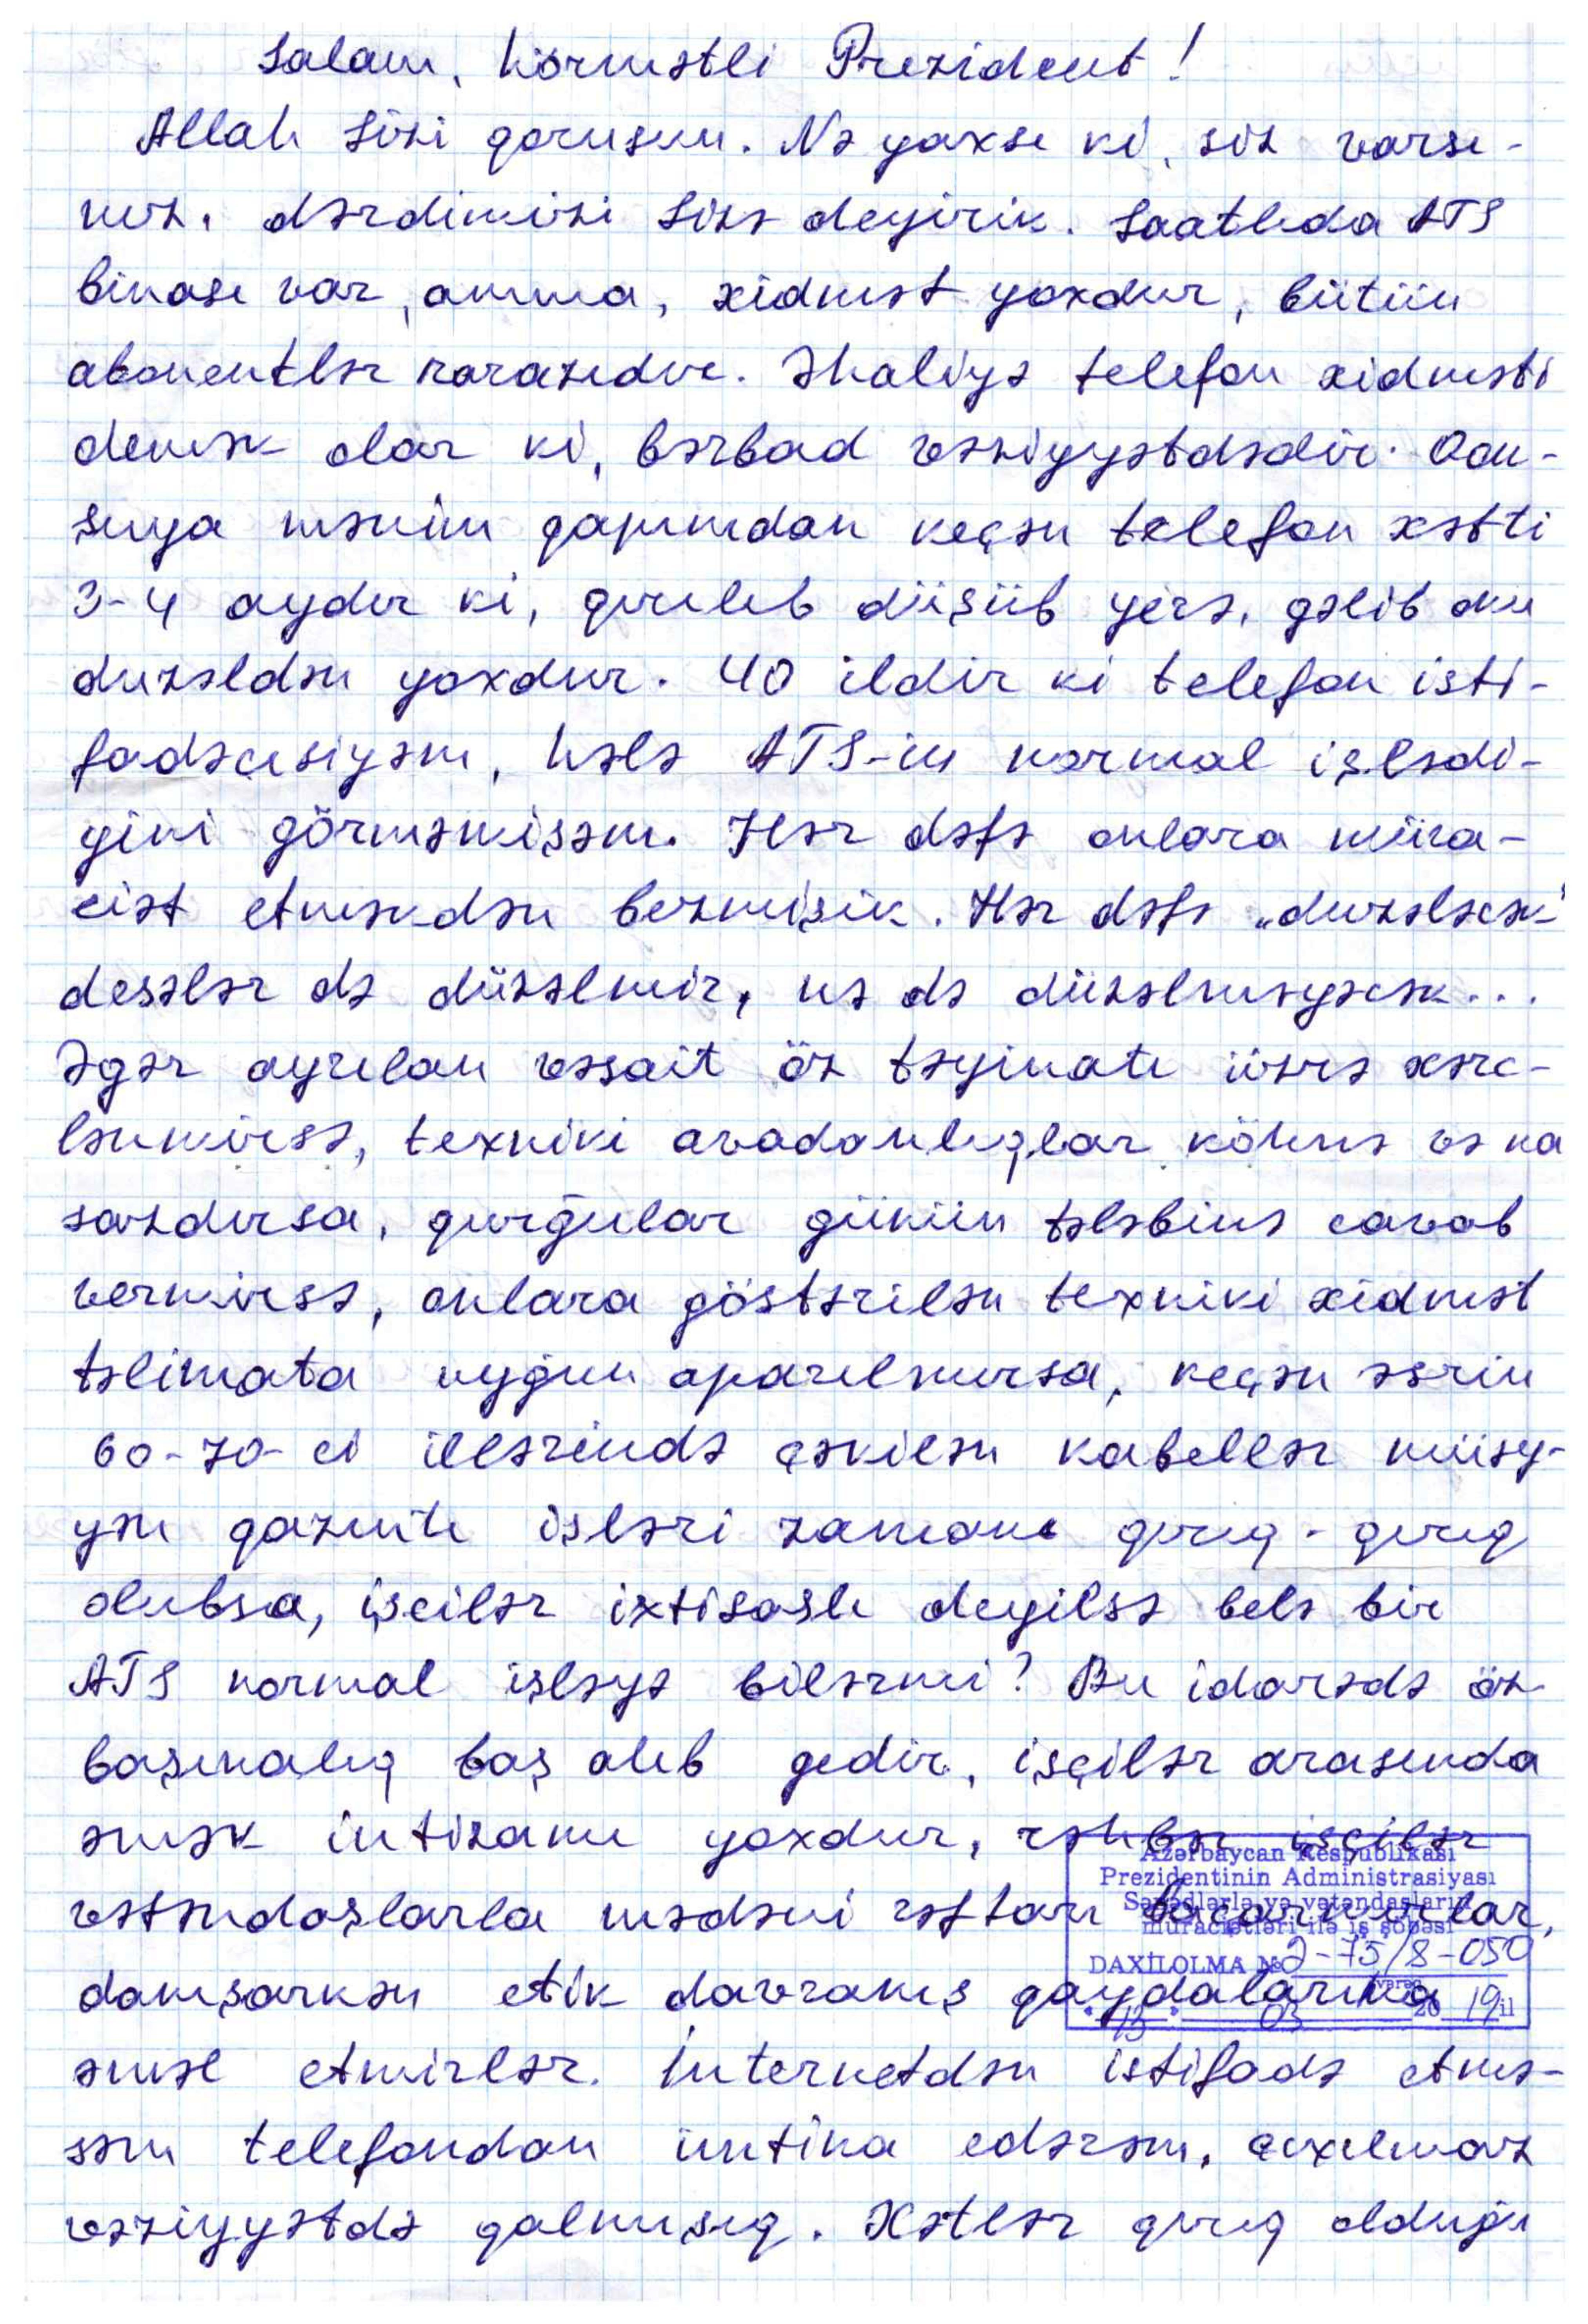 Salam, hörmətli Prezident!
Allah Sizi qorusun. Nə yaxşı ki, siz varsı-
nız, dərdimizi Sizə deyirik. Saatlıda ATS
binası var, amma, xidmət yoxdur, bütün
abonentlər narazıdır. Əhaliyə telefon xidməti
demək olar ki, bərbad vəziyyətdədir. Qon-
şuya mənim qapımdan keçən telefon xətti
3-4 aydır ki, qırılıb düşüb yerə, gəlib onu
duzəldən yoxdur. 40 ildir ki telefon isti-
fadəçisiyəm, hələ ATS-in normal işlədi-
yini görməmişəm. Hər dəfə onlara müra-
ciət etməkdən bezmişik. Hər dəfə „duzələcək"
desələr də düzəlmir, nə də düzəlməyəcək...
Əgər ayrılan vəsait öz təyinatı üzrə xərc-
lənmirsə, texniki avadanlıqlar köhnə və na
sazdırsa, qurğular günün tələbinə cavab
vermirsə, onlara göstərilən texniki xidmət
təlimata uyğun aparılmırsa, keçən əsrin
60-70-ci illərində çəkilən kabellər müəy-
yən qazıntı işləri zamanı qırıq-qırıq
olubsa, işçilər ixtisaslı deyilsə belə bir
ATS normal işləyə bilərmi? Bu idarədə öz
başınalıq baş alıb gedir, işçilər arasında
əmək intizamı yoxdur, rəhbər işçilər
vətəndaşlarla mədəni rəftarı bacarmırlar,
danışarkən etik davranış qaydalarına
əməl etmirlər. İnternetdən istifadə etmə-
səm telefondan imtina edərəm, çıxılmaz
vəziyyətdə qalmışıq. Xətlər qırıq olduğu
Azərbaycan Respublikası
Prezidentinin Administrasiyası
Sənədlərlə və vətəndaşların
müraciətləri ilə iş şöbəsi
DAXİLOLMA № 2-75/8-050
vərəq
"13" 03 2019 il